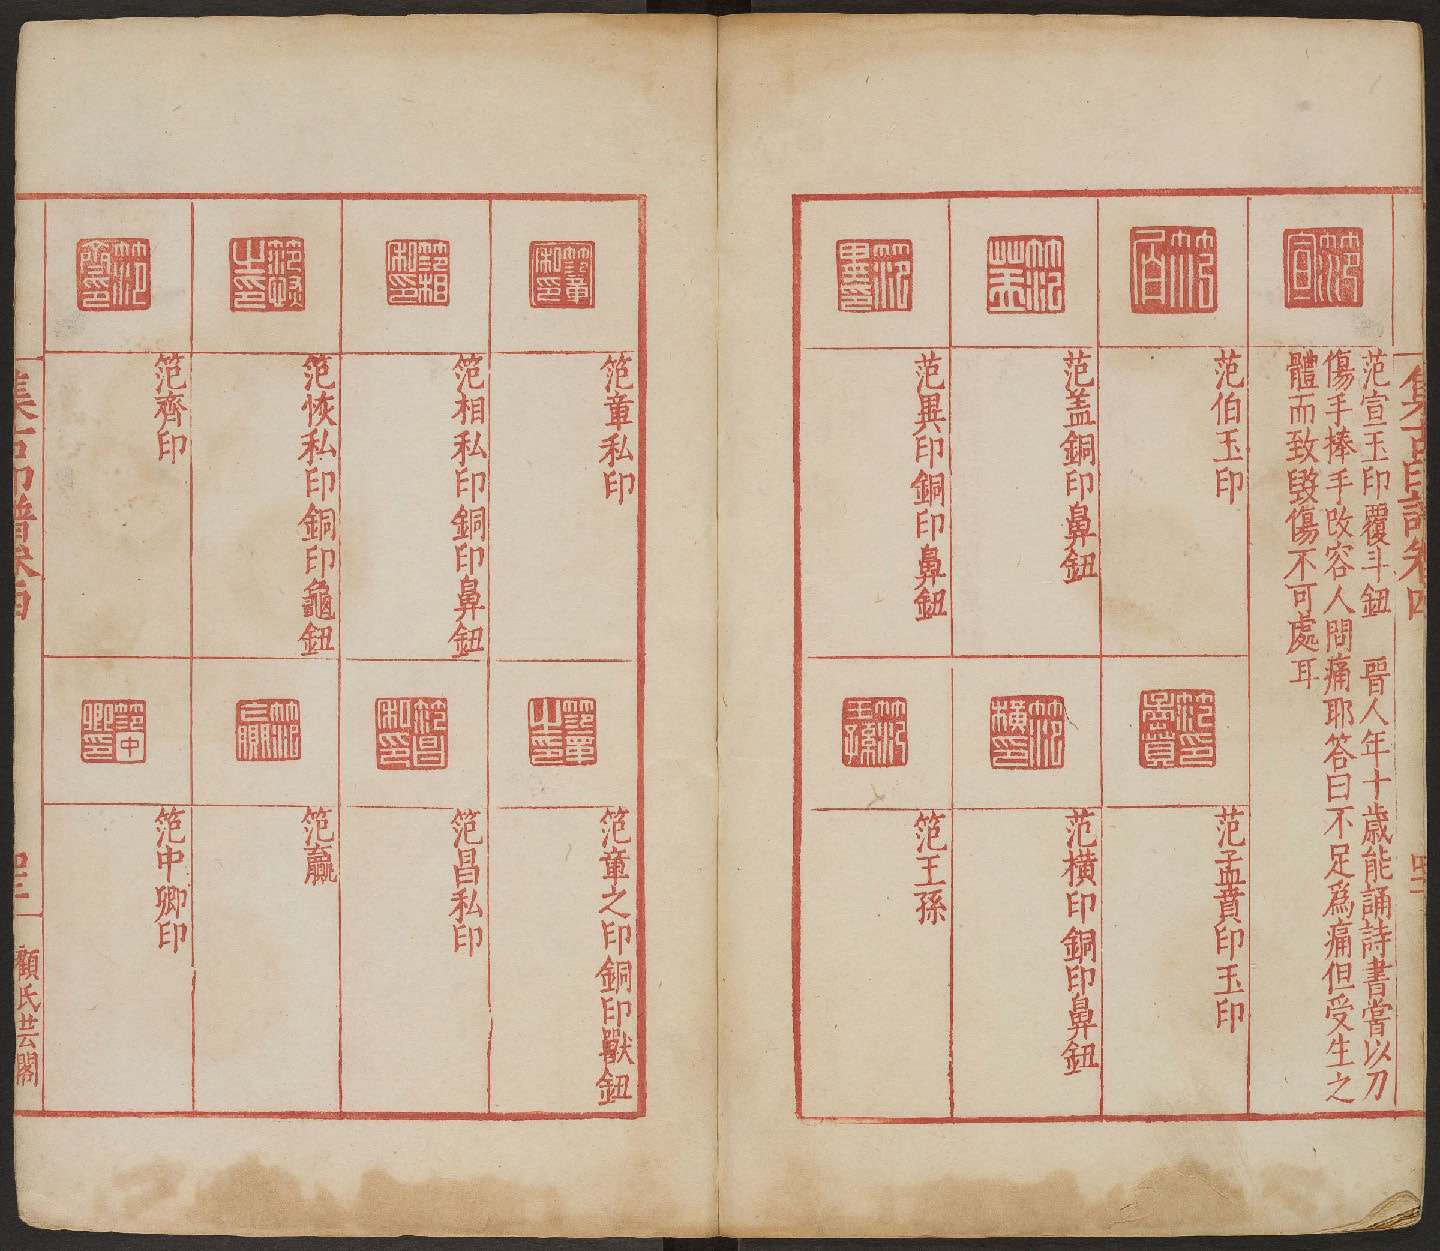 集古印譜卷四
范宣玉印覆斗鈕 晉人年十歲能誦詩書嘗以刀
傷手捧手改容人問痛耶答曰不足為痛但受生之
體而致毀傷不可處耳
范伯玉印
范孟賁印玉印
范盖銅印鼻鈕
范橫印銅印鼻鈕
范異印銅印鼻鈕
范王孫
笵章私印
笵童之印銅印獸鈕
笵相私印銅印鼻鈕
笵昌私印
笵恢私印銅印龜鈕
笵齊印
笵中卿印
集古印譜卷四
顧氏芸閣